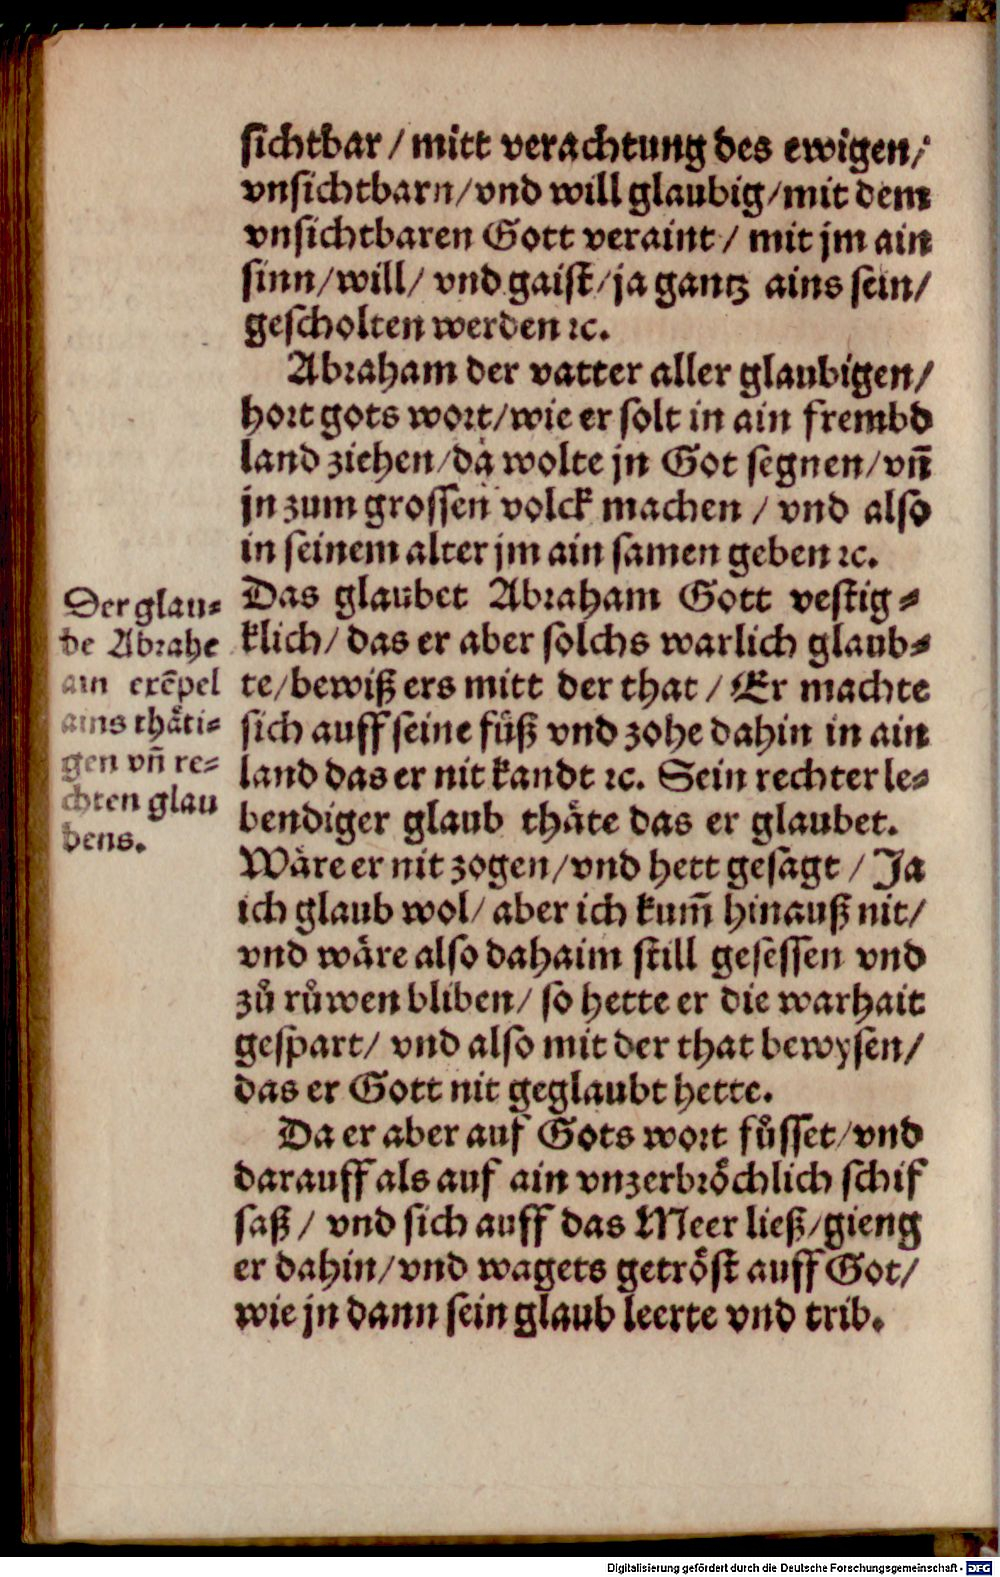 sichtbar / mitt verachtung des ewigen /
vnsichtbarn / vnd will glaubig / mit dem
vnsichtbaren Gott veraint / mit jm ain
sinn / will / vnd gaist / ja gantz ains sein /
gescholten werden ꝛc.
Abraham der vatter aller glaubigen /
hort gots wort / wie er solt in ain frembd
land ziehen / da wolte jn Got segnen / vn̄
jn zum grossen volck machen / vnd also
in seinem alter jm ain samen geben ꝛc.
Das glaubet Abraham Gott vestig⸗
klich / das er aber solchs warlich glaub⸗
te / bewiß ers mitt der that / Er machte
sich auff seine fuͤß vnd zohe dahin in ain
land das er nit kandt ꝛc. Sein rechter le⸗
bendiger glaub thaͤte das er glaubet.
Waͤre er nit zogen / vnd hett gesagt / Ja
ich glaub wol / aber ich kum̄ hinauß nit /
vnd waͤre also dahaim still gesessen vnd
zuͦ ruͦwen bliben / so hette er die warhait
gespart / vnd also mit der that bewysen /
das er Gott nit geglaubt hette.
Da er aber auf Gots wort fuͦsset / vnd
darauff als auf ain vnzerbroͤchlich schif
saß / vnd sich auff das Meer ließ / gieng
er dahin / vnd wagets getroͤst auff Got /
wie jn dann sein glaub leerte vnd trib.
Der glau⸗
be Abrahe
ain exēpel
ains thaͤti⸗
gen vn̄ re⸗
chten glau
bens.
Digitalisierung gefördert durch die Deutsche Forschungsgemeinschaft - DFG